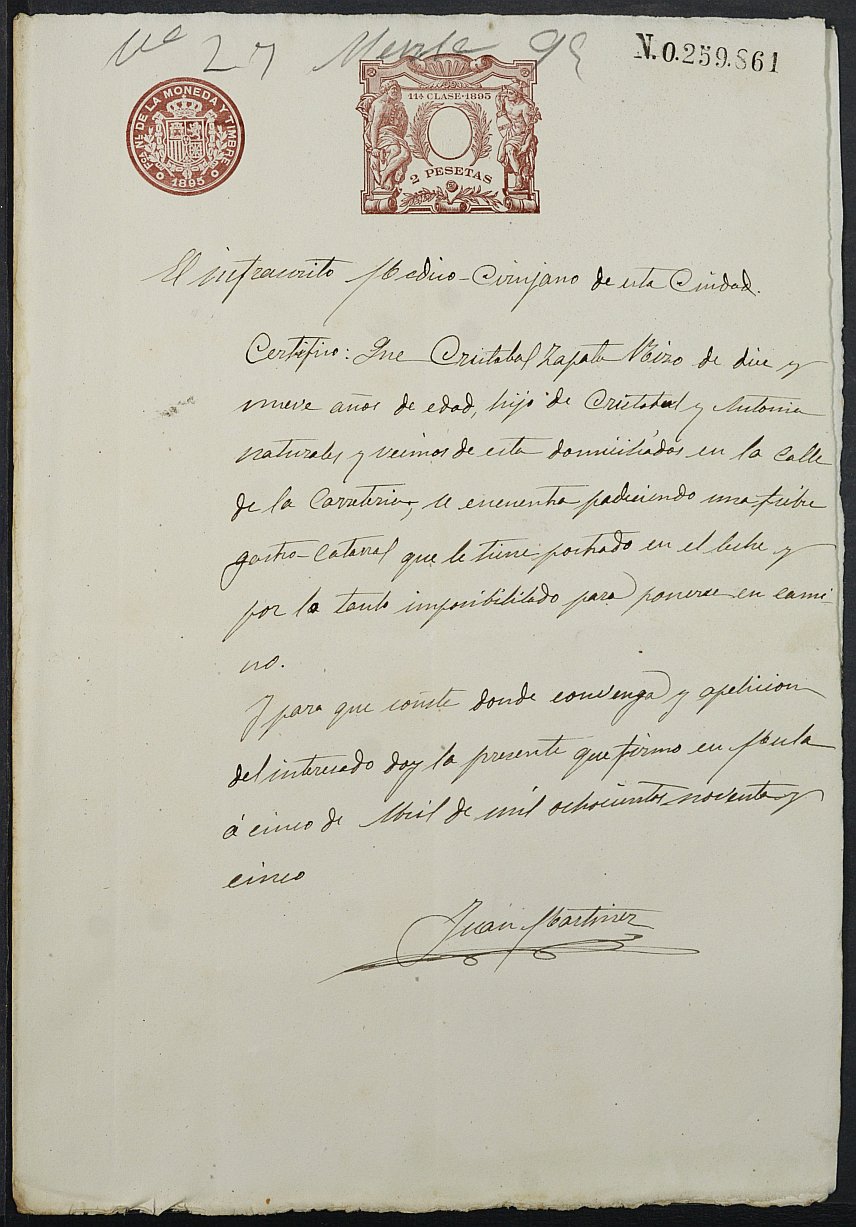 Nº 27 Mula 95
N.0.259.861
Fcª Nl. DE LA MONEDA Y TIMBRE
1895
11ª CLASE·1895
2 PESETAS
El infrascrito Medico-Cirujano de esta Ciudad.
Certifico: Que Cristobal Zapata Rizo de diez y
nueve años de edad, hijo de Cristobal y Antonia
naturales y vecinos de esta domiciliados en la calle
de la Carreteria, se encuentra padeciendo una fiebre
gastro-catarral que le tiene postrado en el leche y
por lo tanto imposibilitado para ponerse en cami-
no.
Y para que conste donde convenga y apeticion
del interesado doy la presente que firmo en Mula
á cinco de Abril de mil ochocientos noventa y
cinco
Juan Martinez